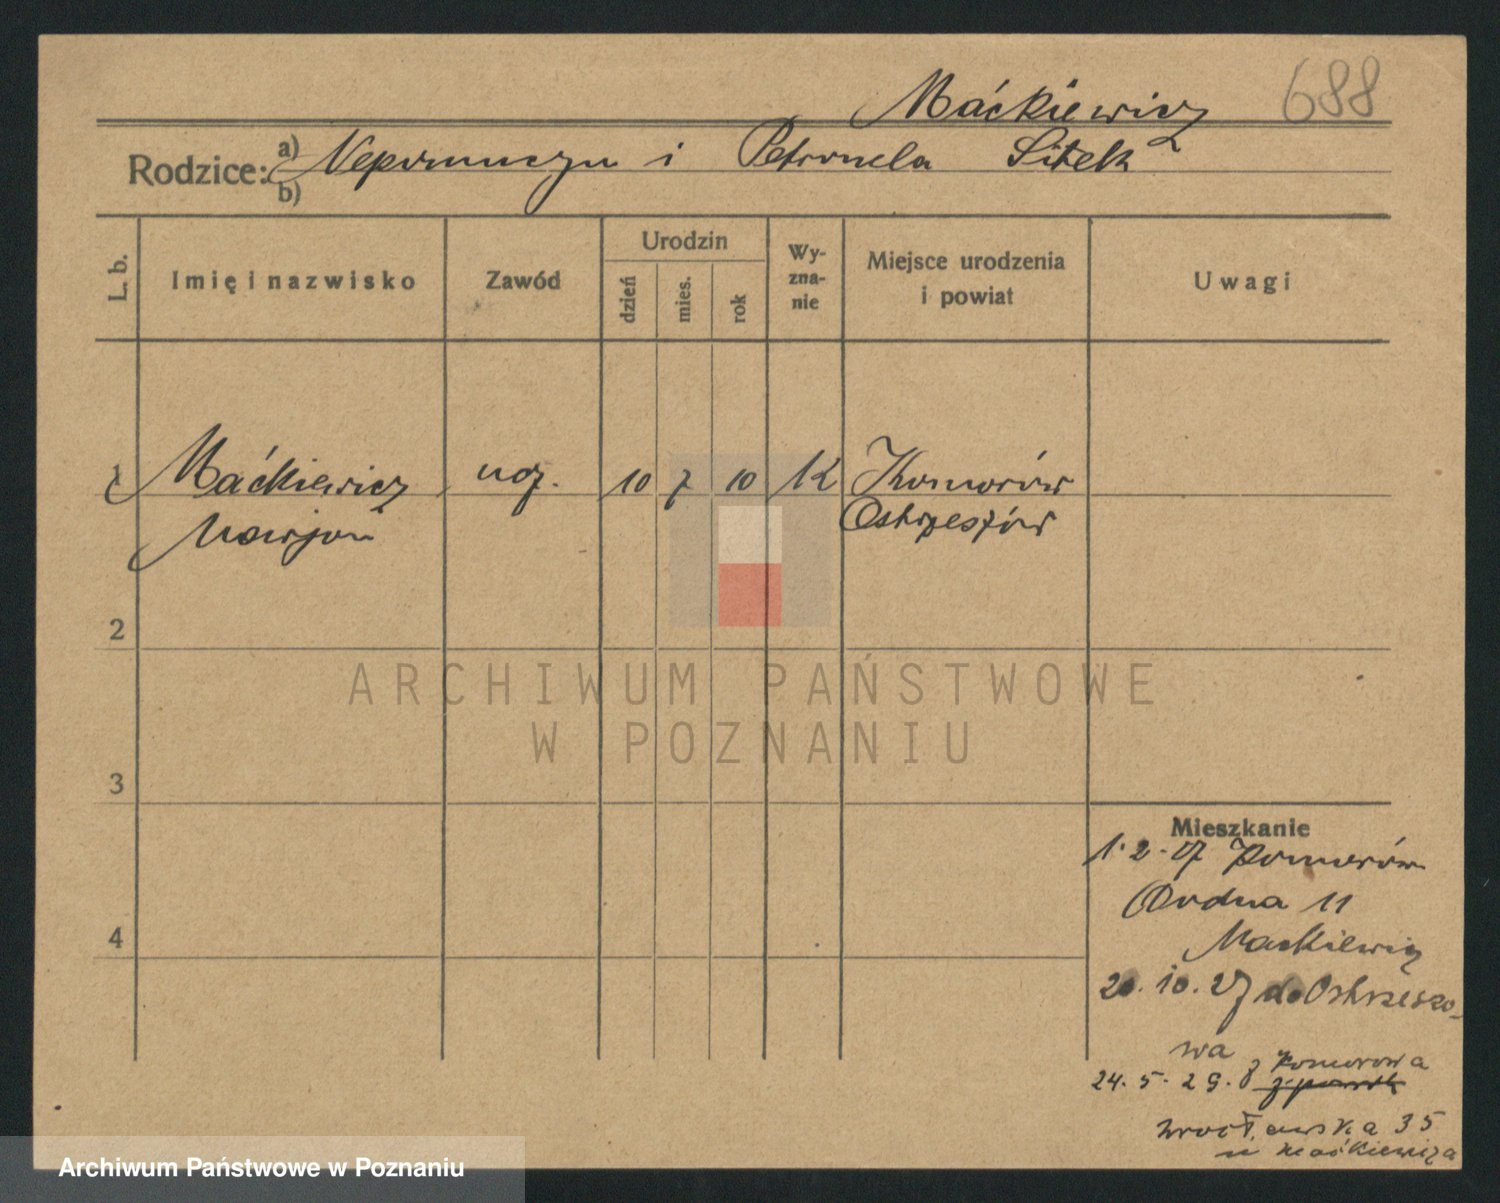 688
Maćkiewicz
Rodzice: a) Nepomucyn i Petronela Sitek
b)
L. b.
Imię i nazwisko
Zawód
Urodzin
dzień
mies.
rok
Wy-
zna-
nie
Miejsce urodzenia
i powiat
Uwagi
1 Maćkiewicz ucz. 10 7 10 K Komorów
Marjan Ostrzeszów
2
3
4
ARCHIWUM PAŃSTWOWE
W POZNANIU
Mieszkanie
1.2.27 Komorów
11
Mackiewicz
20.10.27 do Ostrzeszo-
wa
24.5.29. z Komorowa
Wrocławska 35
u Maćkiewicza
Archiwum Państwowe w Poznaniu